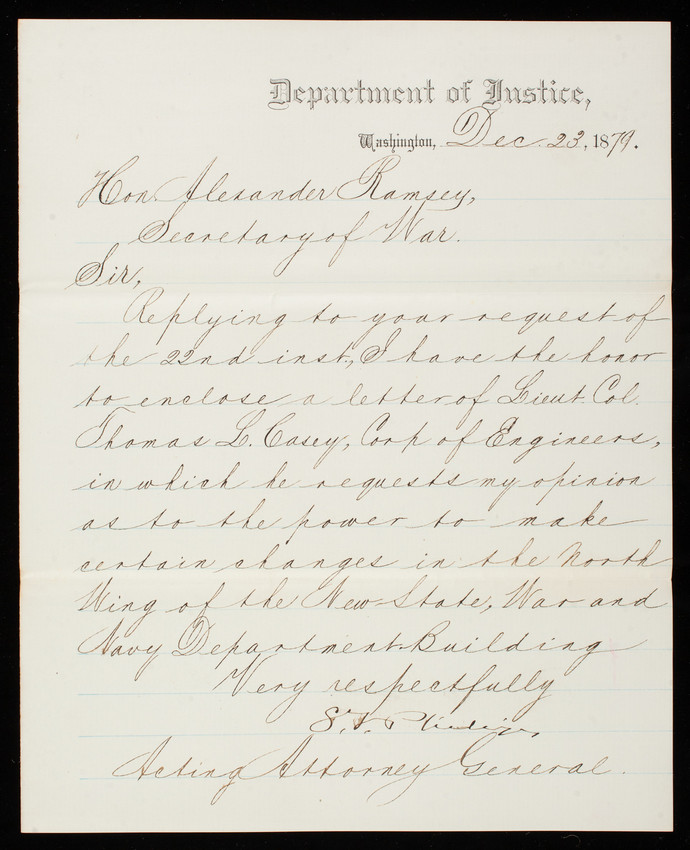 Department of Justice,
Washington, Dec. 23, 1879.
Hon. Alexander Ramsey,
Secretary of War.
Sir,
Replying to your request of
the 22nd inst., I have the honor
to enclose a letter of Lieut. Col.
Thomas L. Casey, Corp of Engineers,
in which he requests my opinion
as to the power to make
certain changes in the North
Wing of the New State, War and
Navy Department Building
Very respectfully
S. F. Phillips,
Acting Attorney General.